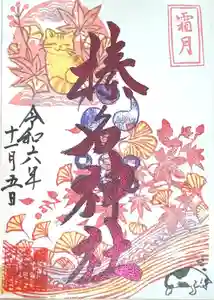 霜月
榛名神社
令和六年
十一月五日